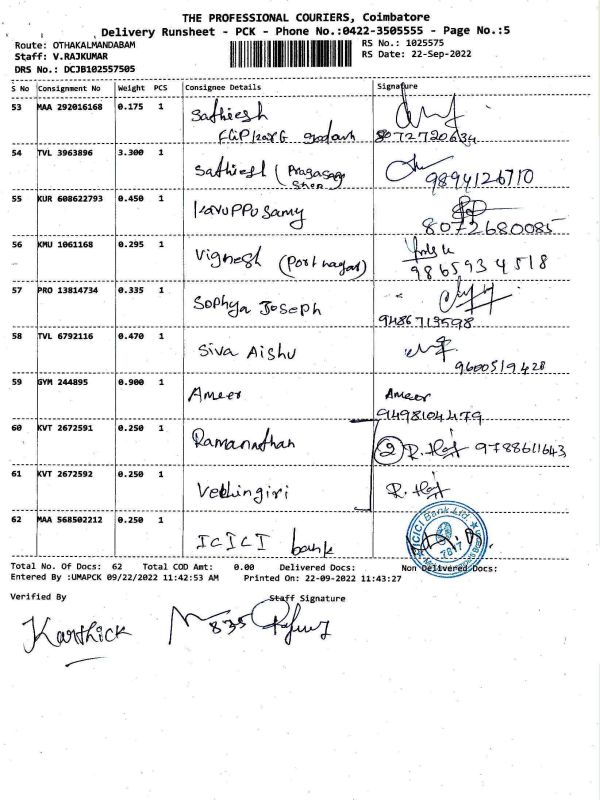 THE PROFESSIONAL COURIERS, Coimbatore
Delivery Runsheet - PCK - Phone No.:0422-3505555 - Page No.:5
Route: OTHAKALMANDABAM
RS No.: 1025575
Staff: V.RAJKUMAR
RS Date: 22-Sep-2022
DRS No.: DCJB102557505
S No Consignment No Weight PCS Consignee Details Signature
53 MAA 292016168 0.175 1 Sathiesh
8072720634
54 TVL 3963896 3.300 1 Sathiesh
9894126710
55 KUR 608622793 0.450 1 Karuppusamy
8072680085
56 KMU 1061168 0.295 1 Vignesh (Port nagar)
9865934518
57 PRO 13814734 0.335 1 Sophya Joseph
9486713598
58 TVL 6792116 0.470 1 Siva Aishu
9600519428
59 GYM 244895 0.900 1 Ameer Ameer
9498104479
60 KVT 2672591 0.250 1 Ramanathan 2 9788611643
61 KVT 2672592 0.250 1 Vellingiri
62 MAA 568502212 0.250 1 ICICI bank
ICICI Bank Ltd
7817
Total No. Of Docs: 62 Total COD Amt: 0.00 Delivered Docs: Non Delivered Docs:
Entered By :UMAPCK 09/22/2022 11:42:53 AM Printed On: 22-09-2022 11:43:27
Verified By Staff Signature
Karthick 835